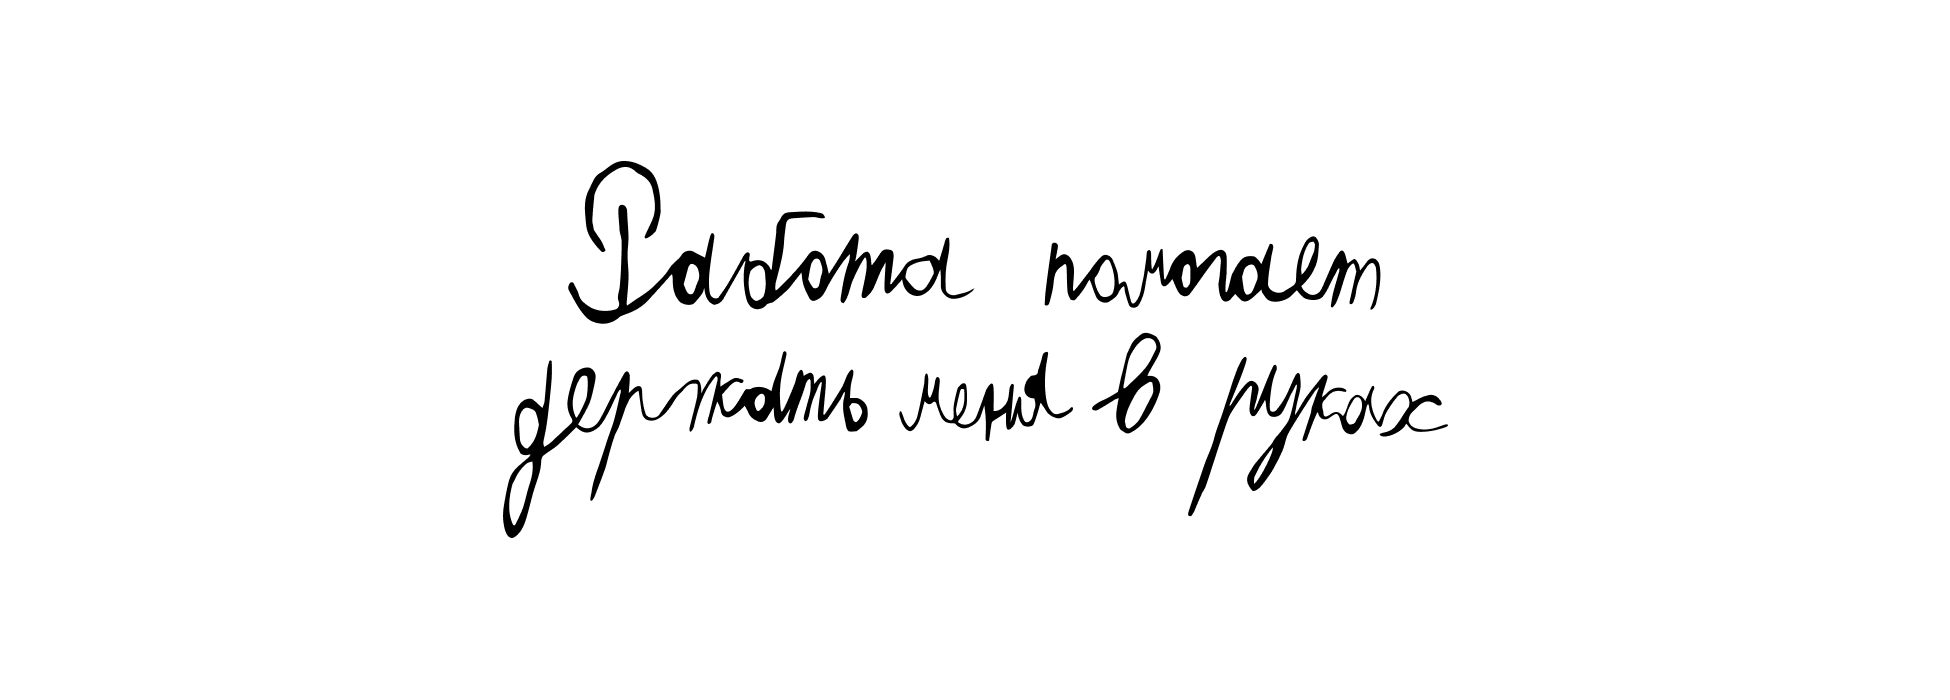 Работа помогает
держать меня в руках